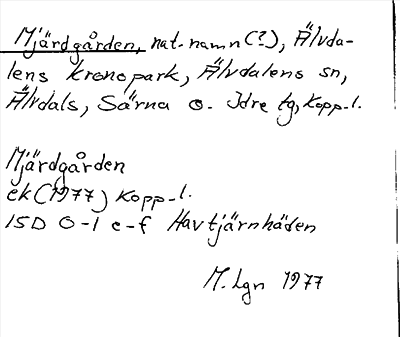 Mjärdgården, nat.namn (?), Älvda-
lens kronopark, Älvdalens sn,
Älvdals, Särna o. Idre tg, Kopp. l.
Mjärdgården
ek (1977) Kopp. l.
15D 0-1 e-f Havtjärnhäden
M. Lgn 1977